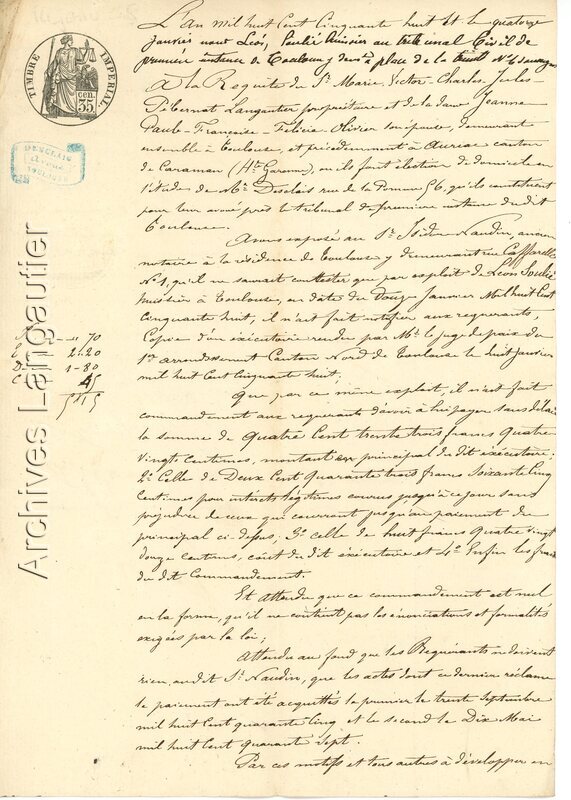 TIMBRE IMPÉRIAL
35 cen.
DESCLAIS
AVOUÉ
TOULOUSE
Archives Langautier
L'an mil huit Cent Cinquante huit et le quatorze
janvier nous Léon Soulié huissier au tribunal Civil de
première instance de Toulouse y dems à place de la
A la Requête du Sr Marie, Victor-Charles Jules
Langautier propriétaire et de la dame Jeanne
Paule-Françoise-Félicie Olivier son épouse, demeurant
ensemble à Toulouse, et précédemment à Auriac canton
de Caraman (Hte Garonne), où ils font élection de domicile en
l'étude de Me Desclais rue de la Pomme 56, qu'ils constituent
pour leur avoué près le tribunal de première instance du dit
Toulouse.
Avons exposé au Sr Isidore Naudin, ancien
notaire à la résidence de Toulouse y demeurant rue Caffarelli
No 1, qu'il ne saurait contester que par exploit de Léon Soulié
huissier à Toulouse, en date du Douze Janvier Mil huit Cent
Cinquante huit, il n'ait fait notifier aux requérants,
Copie d'un exécutoire rendu par Mr le juge de paix du
1er arrondissement Canton Nord de Toulouse le huit janvier
mil huit Cent Cinquante huit;
70
21.20
1-80
45
Que par ce même exploit, il n'ait fait
commandement aux requérants d'avoir à lui payer sans délai
la somme de quatre Cent trente trois francs quatre
vingt centimes, montant en principal du dit exécutoire;
2o Celle de Deux Cent quarante trois francs soixante Cinq
Centimes pour intérêts légitimes courus jusqu'à ce jour sans
préjudice de ceux qui courront jusqu'au paiement du
principal ci-dessus; 3o celle de huit francs quatre vingt
douze centimes, coût du dit exécutoire et 4o Enfin les frais
du dit Commandement.
Et Attendu que ce commandement est nul
en la forme, qu'il ne contient pas les énonciations et formalités
exigées par la loi;
Attendu au fond que les Requérants ne doivent
rien au dit Sr Naudin, que les actes dont ce dernier réclame
le paiement ont été acquittés le premier le trente Septembre
mil huit Cent quarante Cinq et le second le Dix Mai
mil huit Cent quarante sept.
Par ces motifs et tous autres à développer en